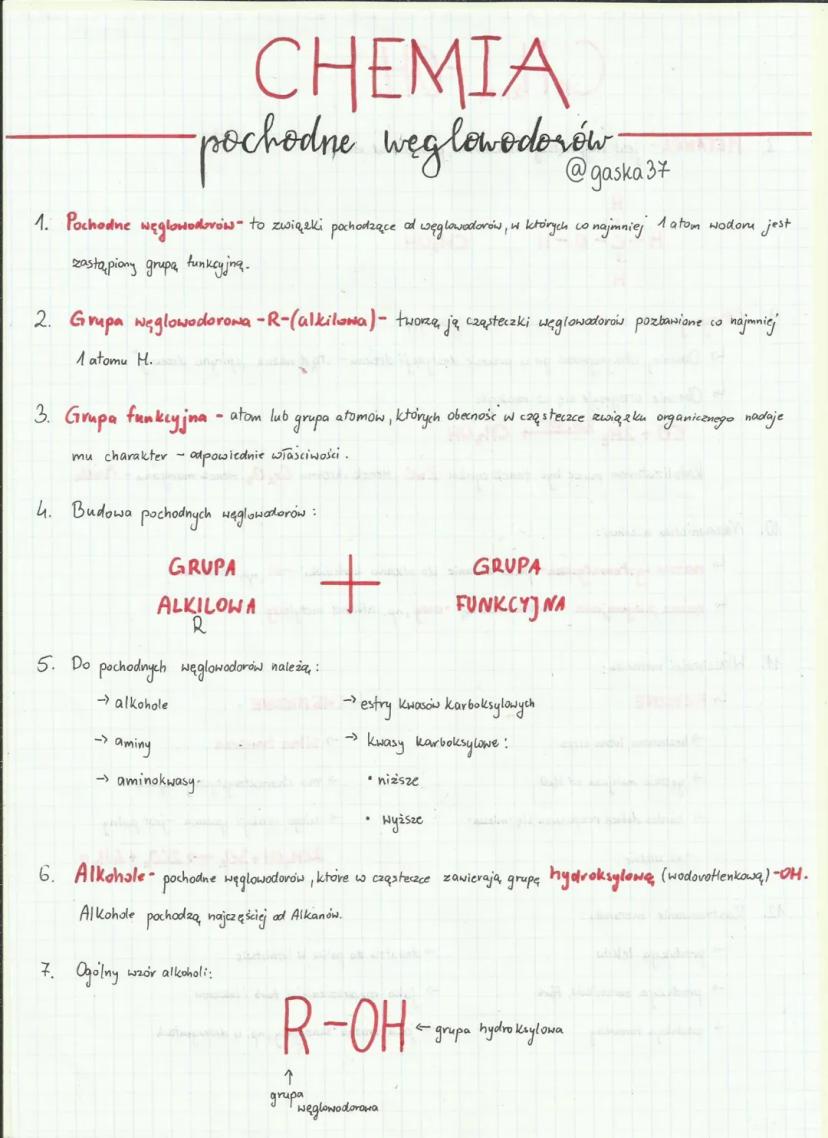 CHEMIA
pochodne węglowodorów
@gaska37
1. Pochodne węglowodorów- to związki pochodzące od węglowodorów, w których co najmniej 1 atom wodoru jest
zastąpiony grupą funkcyjną.
2. Grupa węglowodorowa -R-(alkilowa)- tworzą ją cząsteczki węglowodorów pozbawione co najmniej
1 atomu H.
3. Grupa funkcyjna - atom lub grupa atomów, których obecność w cząsteczce związku organicznego nadaje
mu charakter - odpowiednie właściwości.
4. Budowa pochodnych węglowodorów:
GRUPA + GRUPA
ALKILOWA FUNKCYJNA
R
5. Do pochodnych węglowodorów należą:
→ alkohole → estry kwasów karboksylowych
→ aminy → kwasy karboksylowe:
→ aminokwasy • niższe
• wyższe
6. Alkohole- pochodne węglowodorów, które w cząsteczce zawierają grupę hydroksylową (wodorotlenkową) -OH.
Alkohole pochodzą najczęściej od Alkanów.
7. Ogólny wzór alkoholi:
R-OH ← grupa hydroksylowa
↑
grupa
węglowodorowa